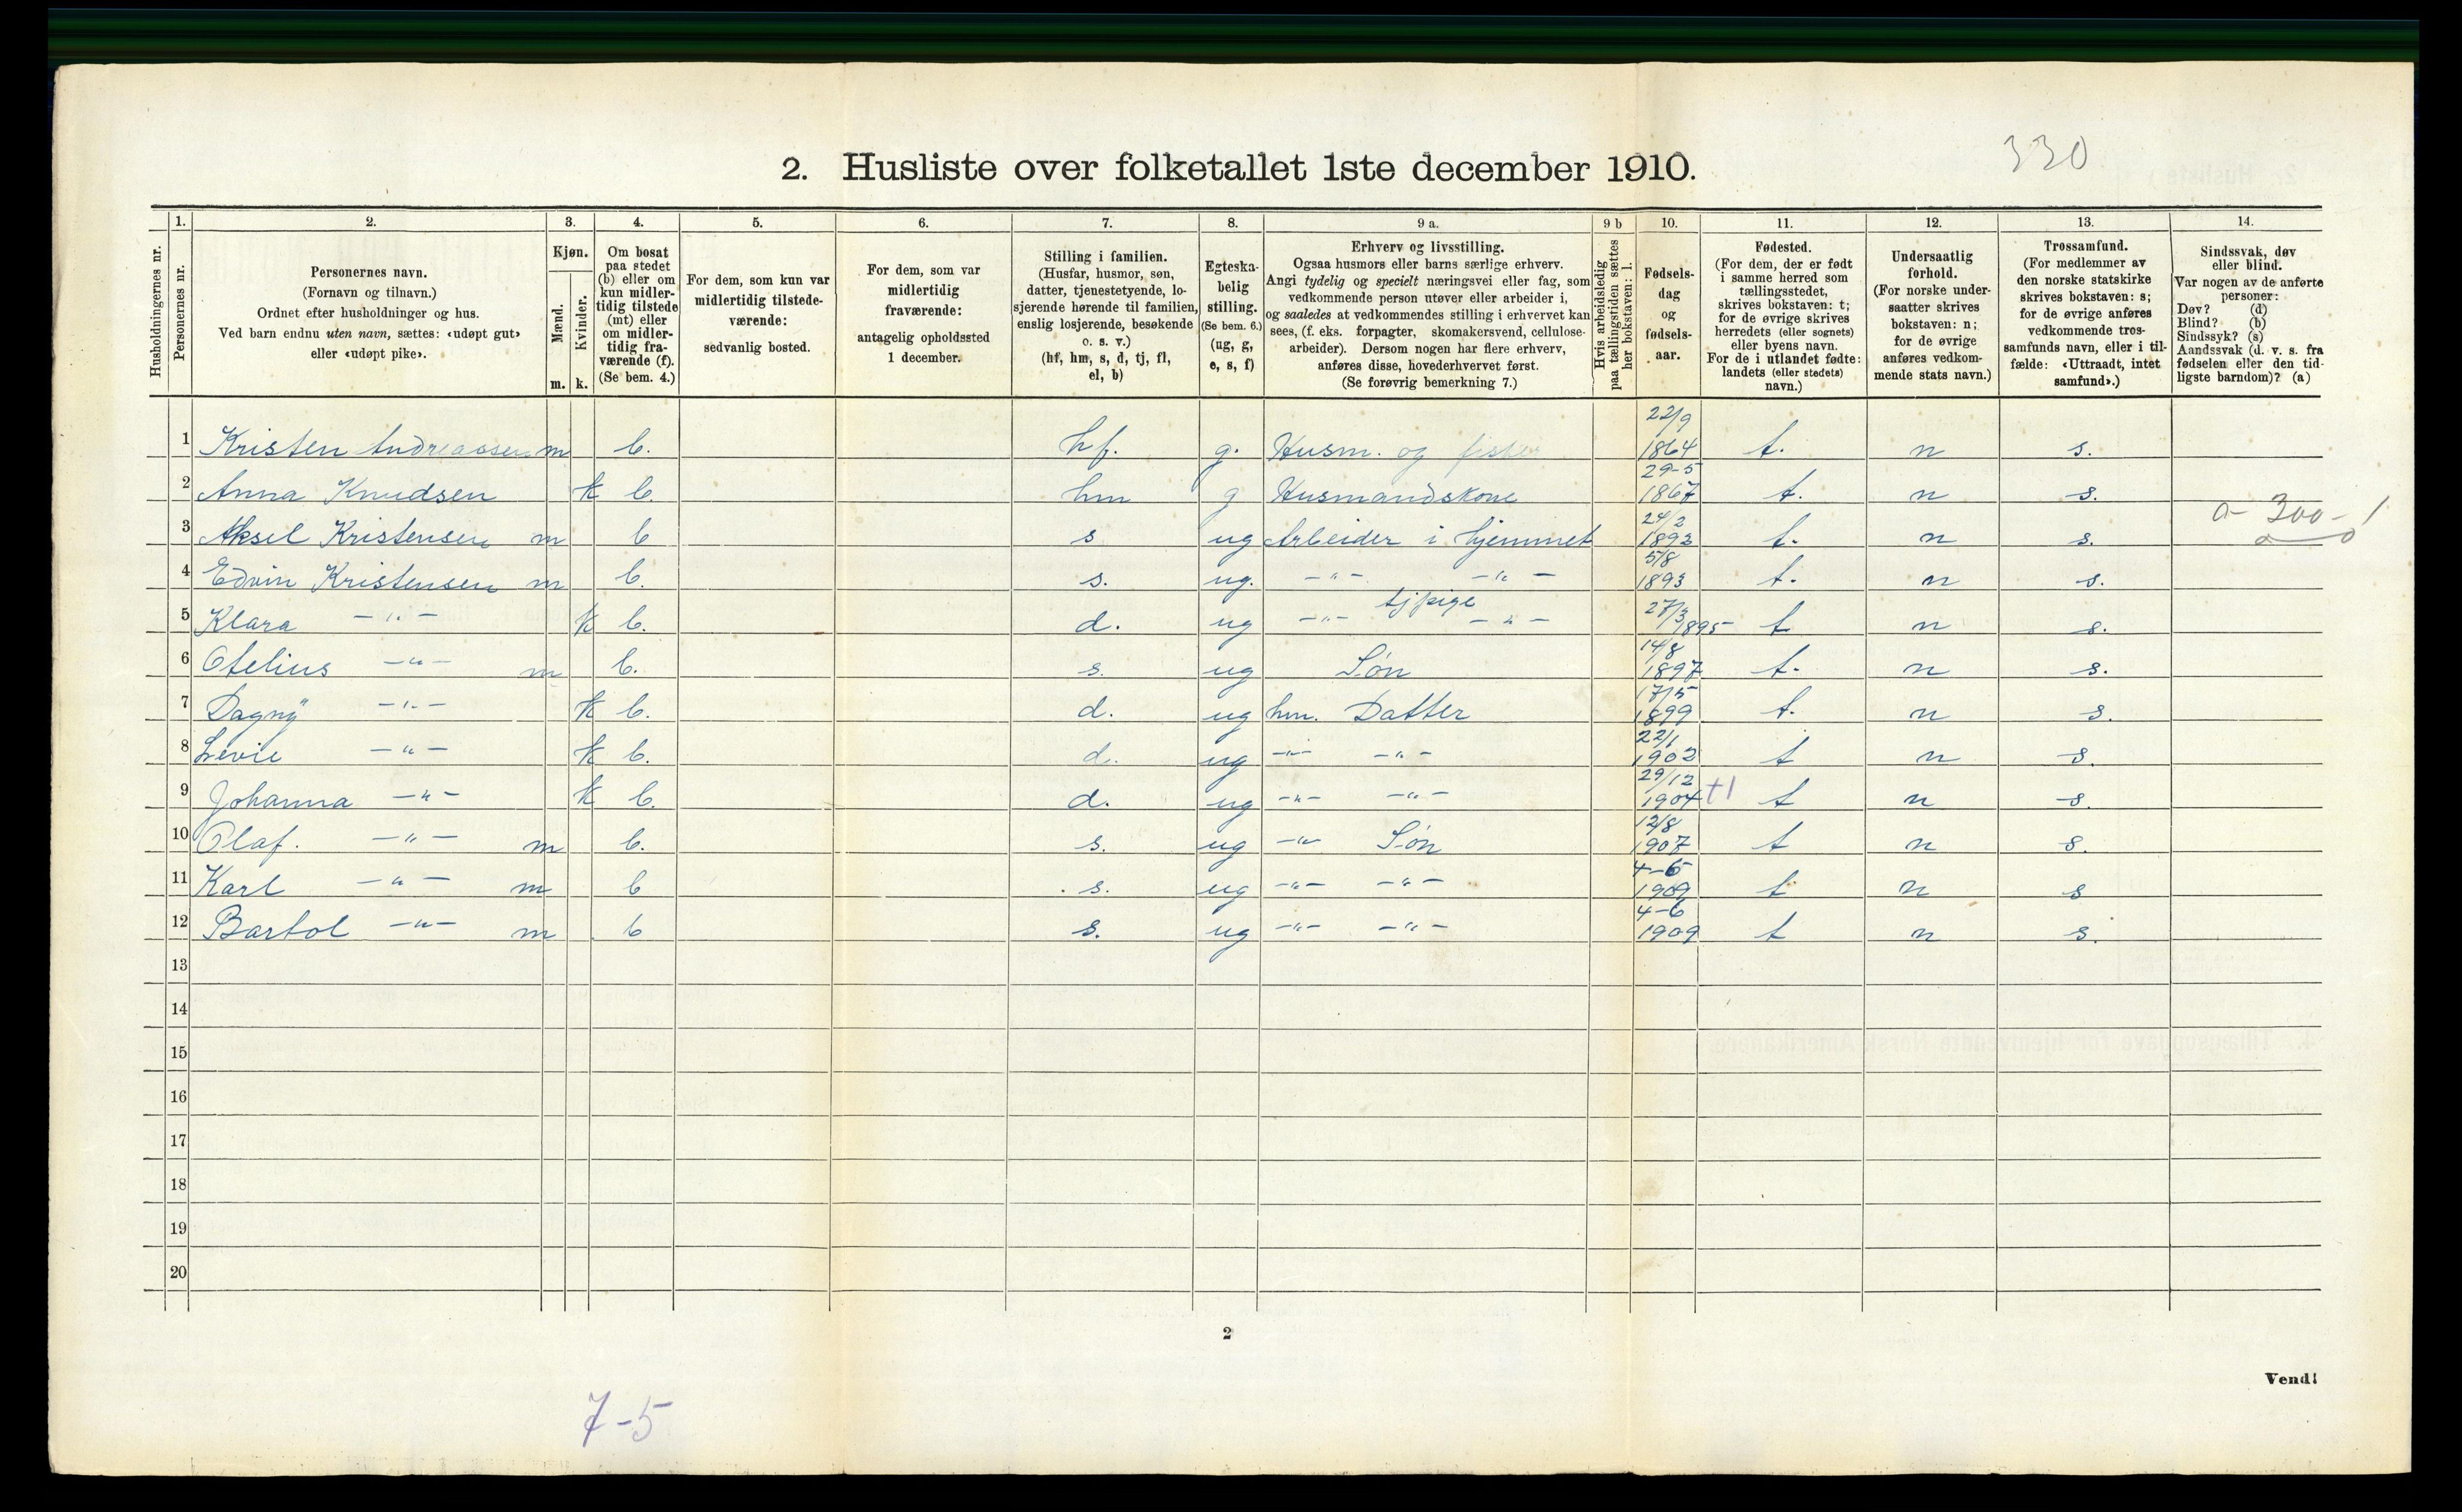 330
2. Husliste over folketallet 1ste december 1910.
1. 2. 3. 4. 5. 6. 7. 8. 9 a. 9 b 10. 11. 12. 13. 14.
Husholdningernes nr.
Personernes nr.
Personernes navn.
(Fornavn og tilnavn.)
Ordnet efter husholdninger og hus.
Ved barn endnu uten navn, sættes: «udøpt gut»
eller «udøpt pike».
Kjøn.
Mænd.
Kvinder.
m. k.
Om bosat
paa stedet
(b) eller om
kun midler-
tidig tilstede
(mt) eller
om midler-
tidig fra-
værende (f).
(Se bem. 4.)
For dem, som kun var
midlertidig tilstede-
værende:
sedvanlig bosted.
For dem, som var
midlertidig
fraværende:
antagelig opholdssted
1 december.
Stilling i familien.
(Husfar, husmor, søn,
datter, tjenestetyende, lo-
sjerende hørende til familien,
enslig losjerende, besøkende
o. s. v.)
(hf, hm, s, d, tj, fl,
el, b)
Egteska-
belig
stilling.
(Se bem. 6.)
(ug, g,
e, s, f)
Erhverv og livsstilling.
Ogsaa husmors eller barns særlige erhverv.
Angi tydelig og specielt næringsvei eller fag, som
vedkommende person utøver eller arbeider i,
og saaledes at vedkommendes stilling i erhvervet kan
sees, (f. eks. forpagter, skomakersvend, cellulose-
arbeider). Dersom nogen har flere erhverv,
anføres disse, hovederhvervet først.
(Se forøvrig bemerkning 7.)
Hvis arbeidsledig
paa tællingstiden sættes
her bokstaven: l.
Fødsels-
dag
og
fødsels-
aar.
Fødested.
(For dem, der er født
i samme herred som
tællingsstedet,
skrives bokstaven: t;
for de øvrige skrives
herredets (eller sognets)
eller byens navn.
For de i utlandet fødte:
landets (eller stedets)
navn.)
Undersaatlig
forhold.
(For norske under-
saatter skrives
bokstaven: n;
for de øvrige
anføres vedkom-
mende stats navn.)
Trossamfund.
(For medlemmer av
den norske statskirke
skrives bokstaven: s;
for de øvrige anføres
vedkommende tros-
samfunds navn, eller i til-
fælde: «Uttraadt, intet
samfund».)
Sindssvak, døv
eller blind.
Var nogen av de anførte
personer:
Døv? (d)
Blind? (b)
Sindssyk? (s)
Aandssvak (d. v. s. fra
fødselen eller den tid-
ligste barndom)? (a)
1 Kristen Andreassen m b. hf. g. Husm. og fisker 22/9 1864 t. n s.
2 Anna Knudsen k b hm g Husmandskone 29-5 1867 t. n s.
3 Aksel Kristensen m b s ug Arbeider i hjemmet 24/2 1892 t. n s. a- 300 - 1
4 Edvin Kristensen m b. s. ug. -"- -"- 5/8 1893 t. n s.
5 Klara -"- k b. d. ug -"- tjpige -"- 27/3 1895 t n s.
6 Otelius -"- m b. s. ug Søn 14/8 1897 t. n s.
7 Dagny -"- k b. d. ug hm. Datter 17/5 1899 t. n s.
8 Levie -"- k b. d. ug -"- -"- 22/1 1902 t n s.
9 Johanna -"- k b. d. ug -"- -"- 29/12 1904 t1 t n s.
10 Olaf. -"- m b. s. ug -"- Søn 12/8 1907 t n s.
11 Karl -"- m b s. ug -"- -"- 4-6 1909 t n s
12 Bartol -"- m b s. ug -"- -"- 4-6 1909 t n s.
13
14
15
16
17
18
19
20
2
Vend!
7-5